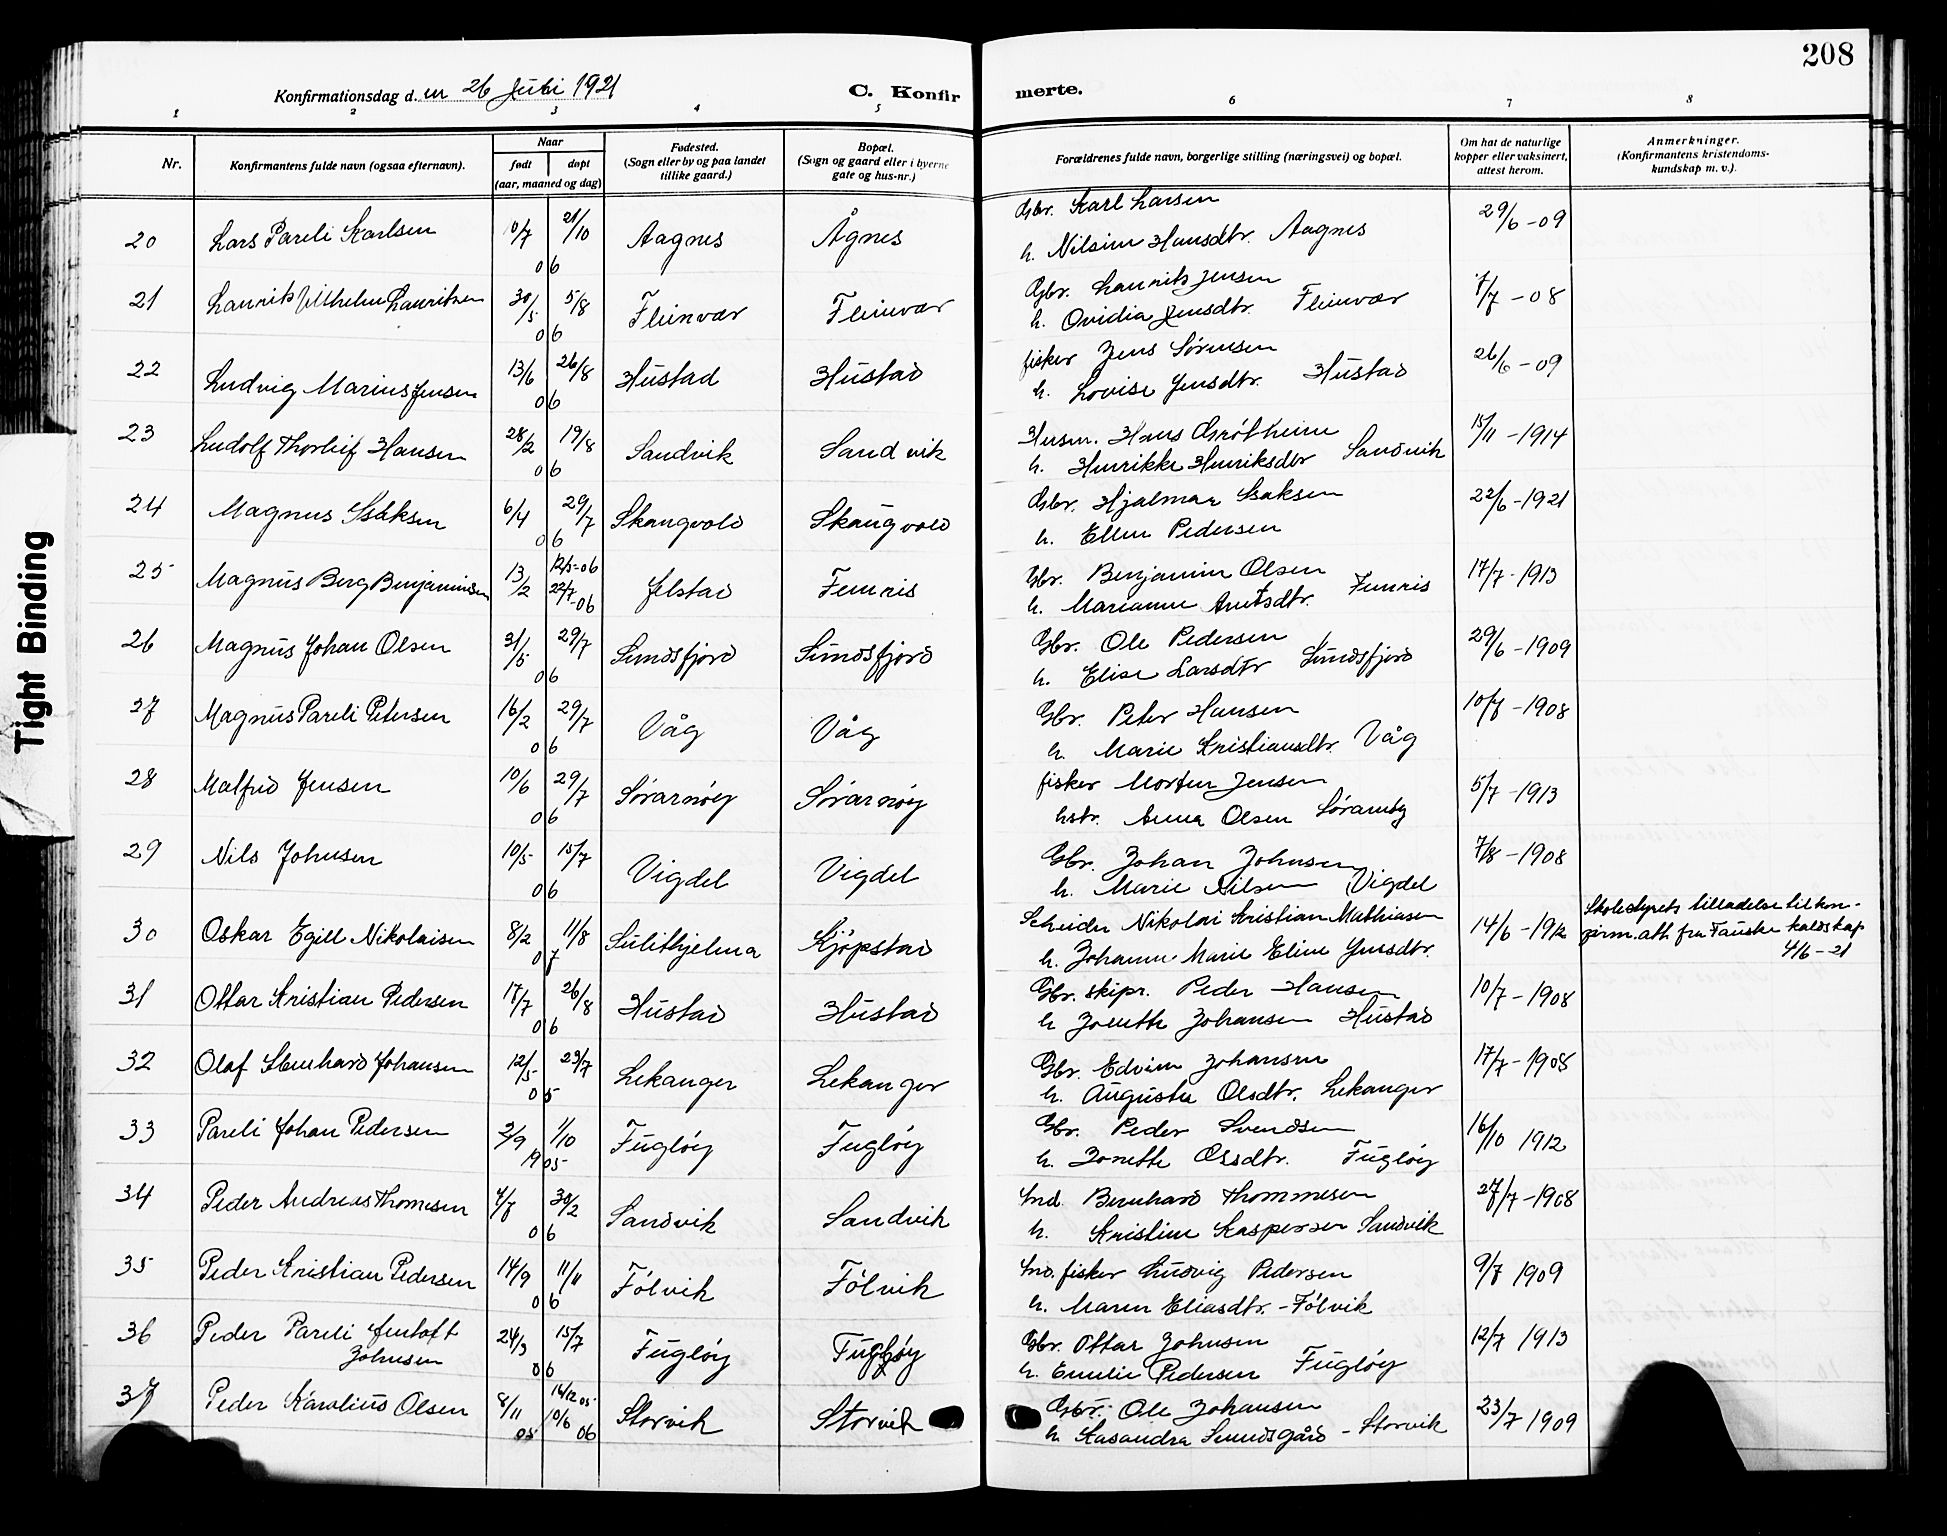 208
Konfirmationsdag d. en 26 Juli 1921
C. Konfirmerte.
1 2 3 4 5 6 7 8
Nr.
Konfirmantens fulde navn (ogsaa efternavn).
Naar
født døpt
(aar, maaned og dag)
Fødested.
(Sogn eller by og paa landet
tillike gaard.)
Bopæl.
(Sogn og gaard eller i byerne
gate og hus-nr.)
Forældrenes fulde navn, borgerlige stilling (næringsvei) og bopæl.
Om hat de naturlige
kopper eller vaksinert,
attest herom.
Anmerkninger.
(Konfirmantens kristendoms-
kundskap m. v.).
20 Lars Pareli Karlsen 10/7 21/10 06 Aagnes Ågnes Gbr. Karl Larsen
h. Nilsine Hansdtr. Aagnes 29/6-09
21 Laurits Vilhelm Lauritsen 30/5 5/8 06 Fleinvær Fleinvær Gbr. Laurits Jensen
h. Ovidia Jensdtr. Fleinvær 7/7-08
22 Ludvig Marius Jensen 13/6 26/8 06 Hustad Hustad fisker Jens Sørensen
h. Lovise Jensdtr. Hustad 26/6-09
23 Ludolf Thorleif Hansen 28/2 19/8 06 Sandvik Sandvik Husm. Hans Grøtheim
h. Henrikke Henriksdtr Sandvik 15/11-1914
24 Magnus Isaksen 6/4 29/7 06 Skaugvold Skaugvold Gbr. Hjalmar Isaksen
h. Ellen Pedersen 22/6-1921
25 Magnus Berg Benjaminsen 13/2 12/5-06 22/7-06 Jelstad Femris Gbr. Benjamin Olsen
h. Marianne Arntsdtr. Femris 17/7-1913
26 Magnus Johan Olsen 31/5 29/7 06 Sundsfjord Sundsfjord Gbr. Ole Pedersen
h. Elise Larsdtr Sundsfjord 29/6-1909
27 Magnus Pareli Petersen 16/2 29/7 06 Våg Våg Gbr. Peter Hansen
h. Marie Kristiansdtr. Våg 10/7-1908
28 Malfred Jensen 10/6 29/7 06 Sørarnøy Sørarnøy fisker Morten Jensen
hstr. Anna Olsen Sørarnøy 5/7-1913
29 Nils Johnsen 10/5 15/7 06 Vigdel Vigdel Gbr. Johan Johnsen
h. Marie Nilsen Vigdel 7/8-1908
30 Oskar Egill Nikolaisen 8/2 11/8 07 Sulitjelma Kjøpstad Scheider Nikolai Kristian Mathiasen
h. Johanne Marie Eline Jensdtr. 14/6-1912
Skolestyrets tilladelse til kon-
firm. att. fra Fauske
4/6-21
31 Ottar Kristian Pedersen 17/7 26/8 06 Hustad Hustad Gbr. skipr. Peder Hansen
h Jonette Johansen Hustad 10/7-1908
32 Olaf Stenhard Johansen 12/5 23/7 05 Lekanger Lekanger Gbr. Edvin Johansen
h. Augusta Olsdtr. Lekanger 17/7-1908
33 Pareli Johan Pedersen 2/9 1/10 1905 Fugløy Fugløy Gbr. Peder Svendsen
h. Jonette Olsdtr. Fugløy 16/10 1912
34 Peder Andreas Thomesen 4/7 30/2 06 Sandvik Sandvik Ind. Bernhard Thommesen
h. Kristine Kaspersen Sandvik 27/7-1908
35 Peder Kristian Pedersen 14/9 11/11 06 Følvik Følvik Ind. fisker Ludvig Pedersen
h. Maren Eliasdtr. - Følvik 9/7 1909
36 Peder Pareli Jentoft
Johnsen 24/3 15/7 06 Fugløy Fugløy Gbr. Ottar Johnsen
h. Emelie Pedersen Fugløy 12/7 1913
37 Peder Karolius Olsen 8/11 05 14/12 05 10/6 06 Storvik Storvik Gbr. Ole Johansen
h. Kasandra Sundsgård - Storvik 23/7 1909
Tight Binding